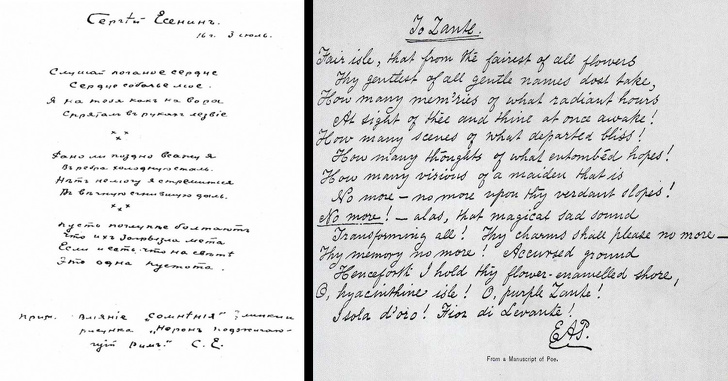 Сергѣй Есенинъ.
16 г. 3 июль.
Слушай поганое сердце
Сердце собачье мое.
Я на тебя какъ на вора
Спряталъ въ рукахъ лезвие
Рано ли поздно всажу я
Въ ребра холодную сталь.
Нѣтъ не могу я стремиться
Въ вѣчную сгнившую даль.
Пусть поглупѣе болтаютъ
Что ихъ загрызла мета
Если и есть что на свѣтѣ
Это одна пустота.
Прим. Влянiе „Сомнѣнiя" Глинки и
рисунка „Неронъ поджигаю-
щiй Римъ." С. Е.
To Zante.
Fair isle, that from the fairest of all flowers
Thy gentlest of all gentle names dost take,
How many mem'ries of what radiant hours
At sight of thee and thine at once awake!
How many scenes of what departed bliss!
How many thoughts of what entombéd hopes!
How many visions of a maiden that is
No more — no more upon thy verdant slopes!
No more! — alas, that magical sad sound
Transforming all! Thy charms shall please no more —
Thy memory no more! Accursed ground
Henceforth I hold thy flower-enamelled shore,
O, hyacinthine isle! O, purple Zante!
Isola d'oro! Fior di Levante!
EAP.
From a Manuscript of Poe.